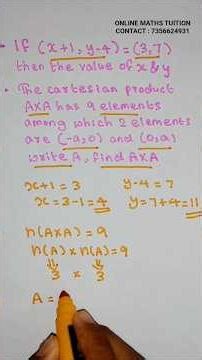 ONLINE MATHS TUITION
CONTACT : 7356624931
• If (x+1, y-4) = (3,7)
then the value of x & y
• The cartesian product
AXA has 9 elements
among which 2 elements
are (-a,0) and (0,a)
write A, find AXA
x+1 = 3 y-4 = 7
x = 3-1 = 4 y = 7+4 = 11
n(AXA) = 9
n(A) x n(A) = 9
3 x 3
A =